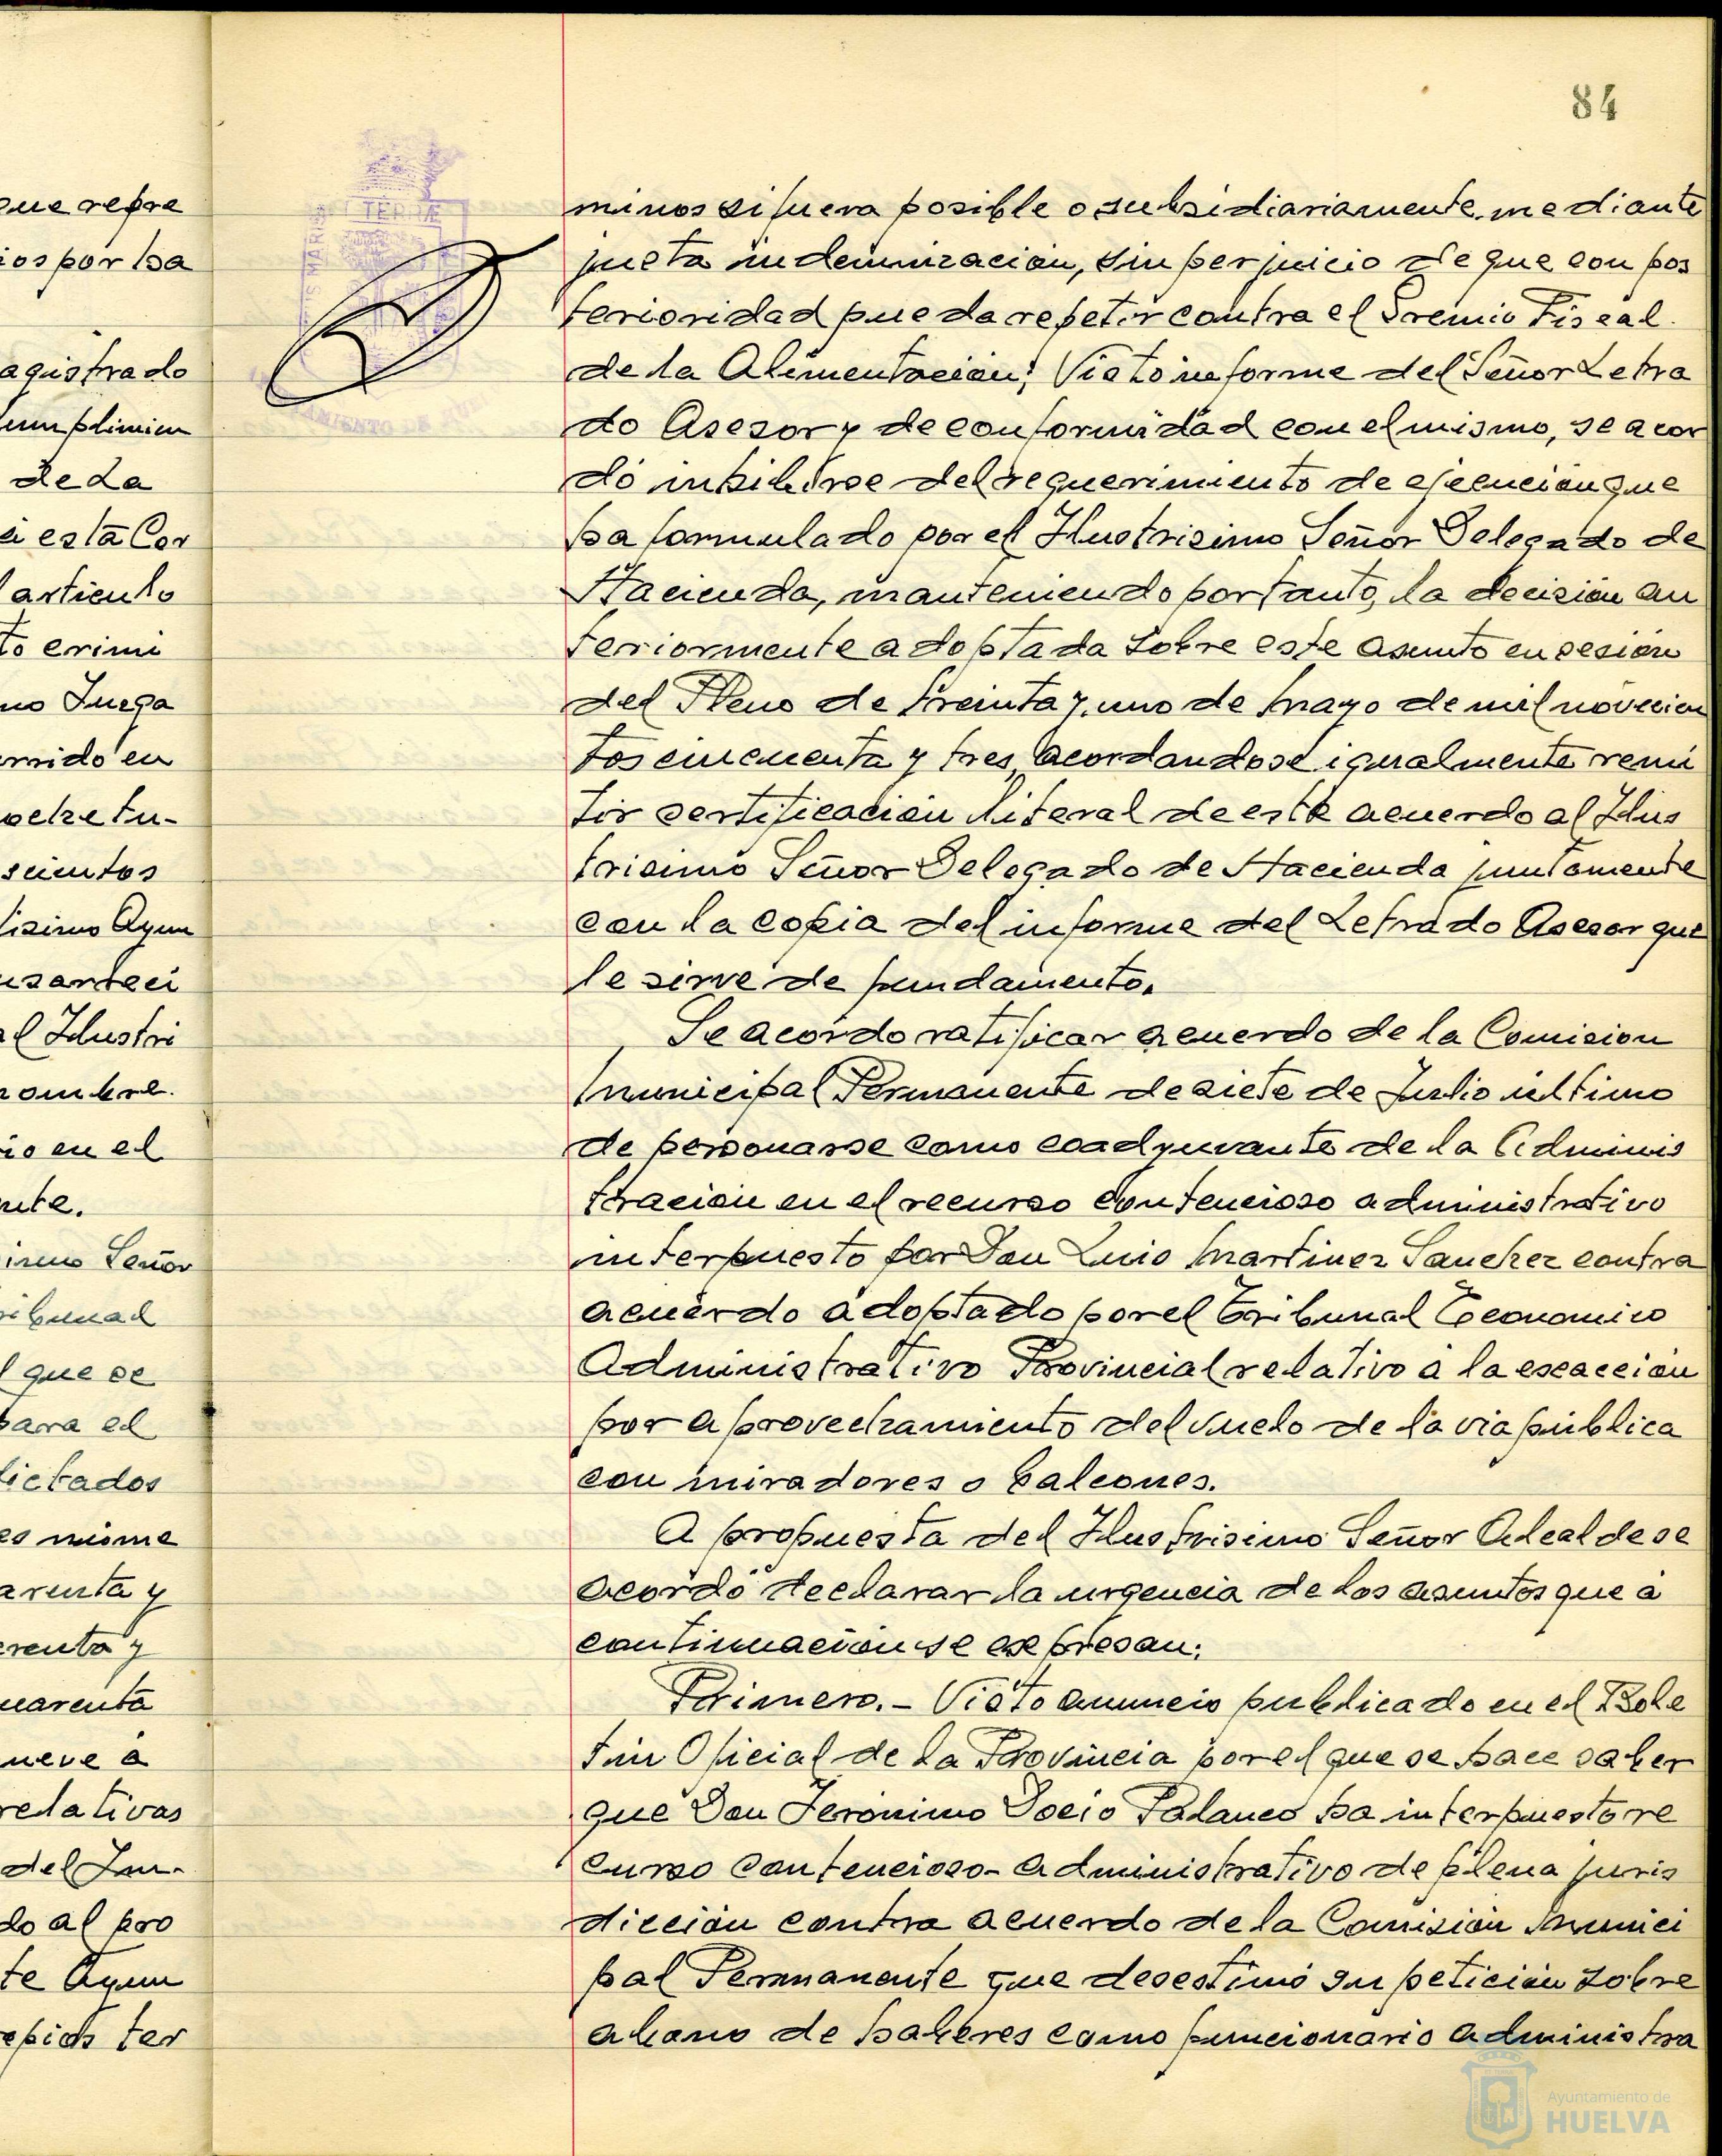 84
que repre
ios por ha
agistrado
umplimien
de La
a esta Cor
l articulo
to crimi
no Juzga
rrido en
oche tu-
scientos
lisimo Ayun
usanteci
al Ilustri
nombre.
io en el
nte.
isimo Señor
ribunal
l que se
para el
lictados
es misme
arenta y
renta y
uarenta
ueve a
relativas
del Im-
do al pro
te Ayun
opios ter
TERRÆ
MARIS
AMIENTO DE HUEL
minos si fuera posible o subsidiariamente mediante
justa indemnizacion, sin perjuicio de que con pos
terioridad pueda repetir contra el Gremio Fiscal
de la Alimentacion; Visto informe del Señor Letra
do Asesor y de conformidad con el mismo, se acor
dó inhibirse del requerimiento de ejecución que
ha formulado por el Ilustrisimo Señor Delegado de
Hacienda, manteniendo por tanto, la decisión an
teriormente adoptada sobre este asunto en sesión
del Pleno de treinta y uno de mayo de mil novecien
tos cincuenta y tres, acordandose igualmente remi
tir certificación literal de este acuerdo al Ilus
trisimo Señor Delegado de Hacienda juntamente
con la copia del informe del Letrado Asesor que
le sirve de fundamento.
Se acordo ratificar acuerdo de la Comision
Municipal Permanente de siete de Julio último
de personarse como coadyuvante de la Adminis
tracion en el recurso contencioso administrativo
interpuesto por Don Luis Martinez Sanchez contra
acuerdo adoptado por el Tribunal Economico
Administrativo Provincial relativo a la exacción
por aprovechamiento del vuelo de la via pública
con miradores o balcones.
A propuesta del Ilustrisimo Señor Alcalde se
acordó declarar la urgencia de los asuntos que a
continuacion se expresan:
Primero.- Visto anuncio publicado en el Bole
tin Oficial de la Provincia por el que se hace saber
que Don Jeronimo Socio Palanco ha interpuesto re
curso contencioso-administrativo de plena juris
dicción contra acuerdo de la Comisión Munici
pal Permanente que desestimó su petición sobre
abono de haberes como funcionario administra
Ayuntamiento de
HUELVA